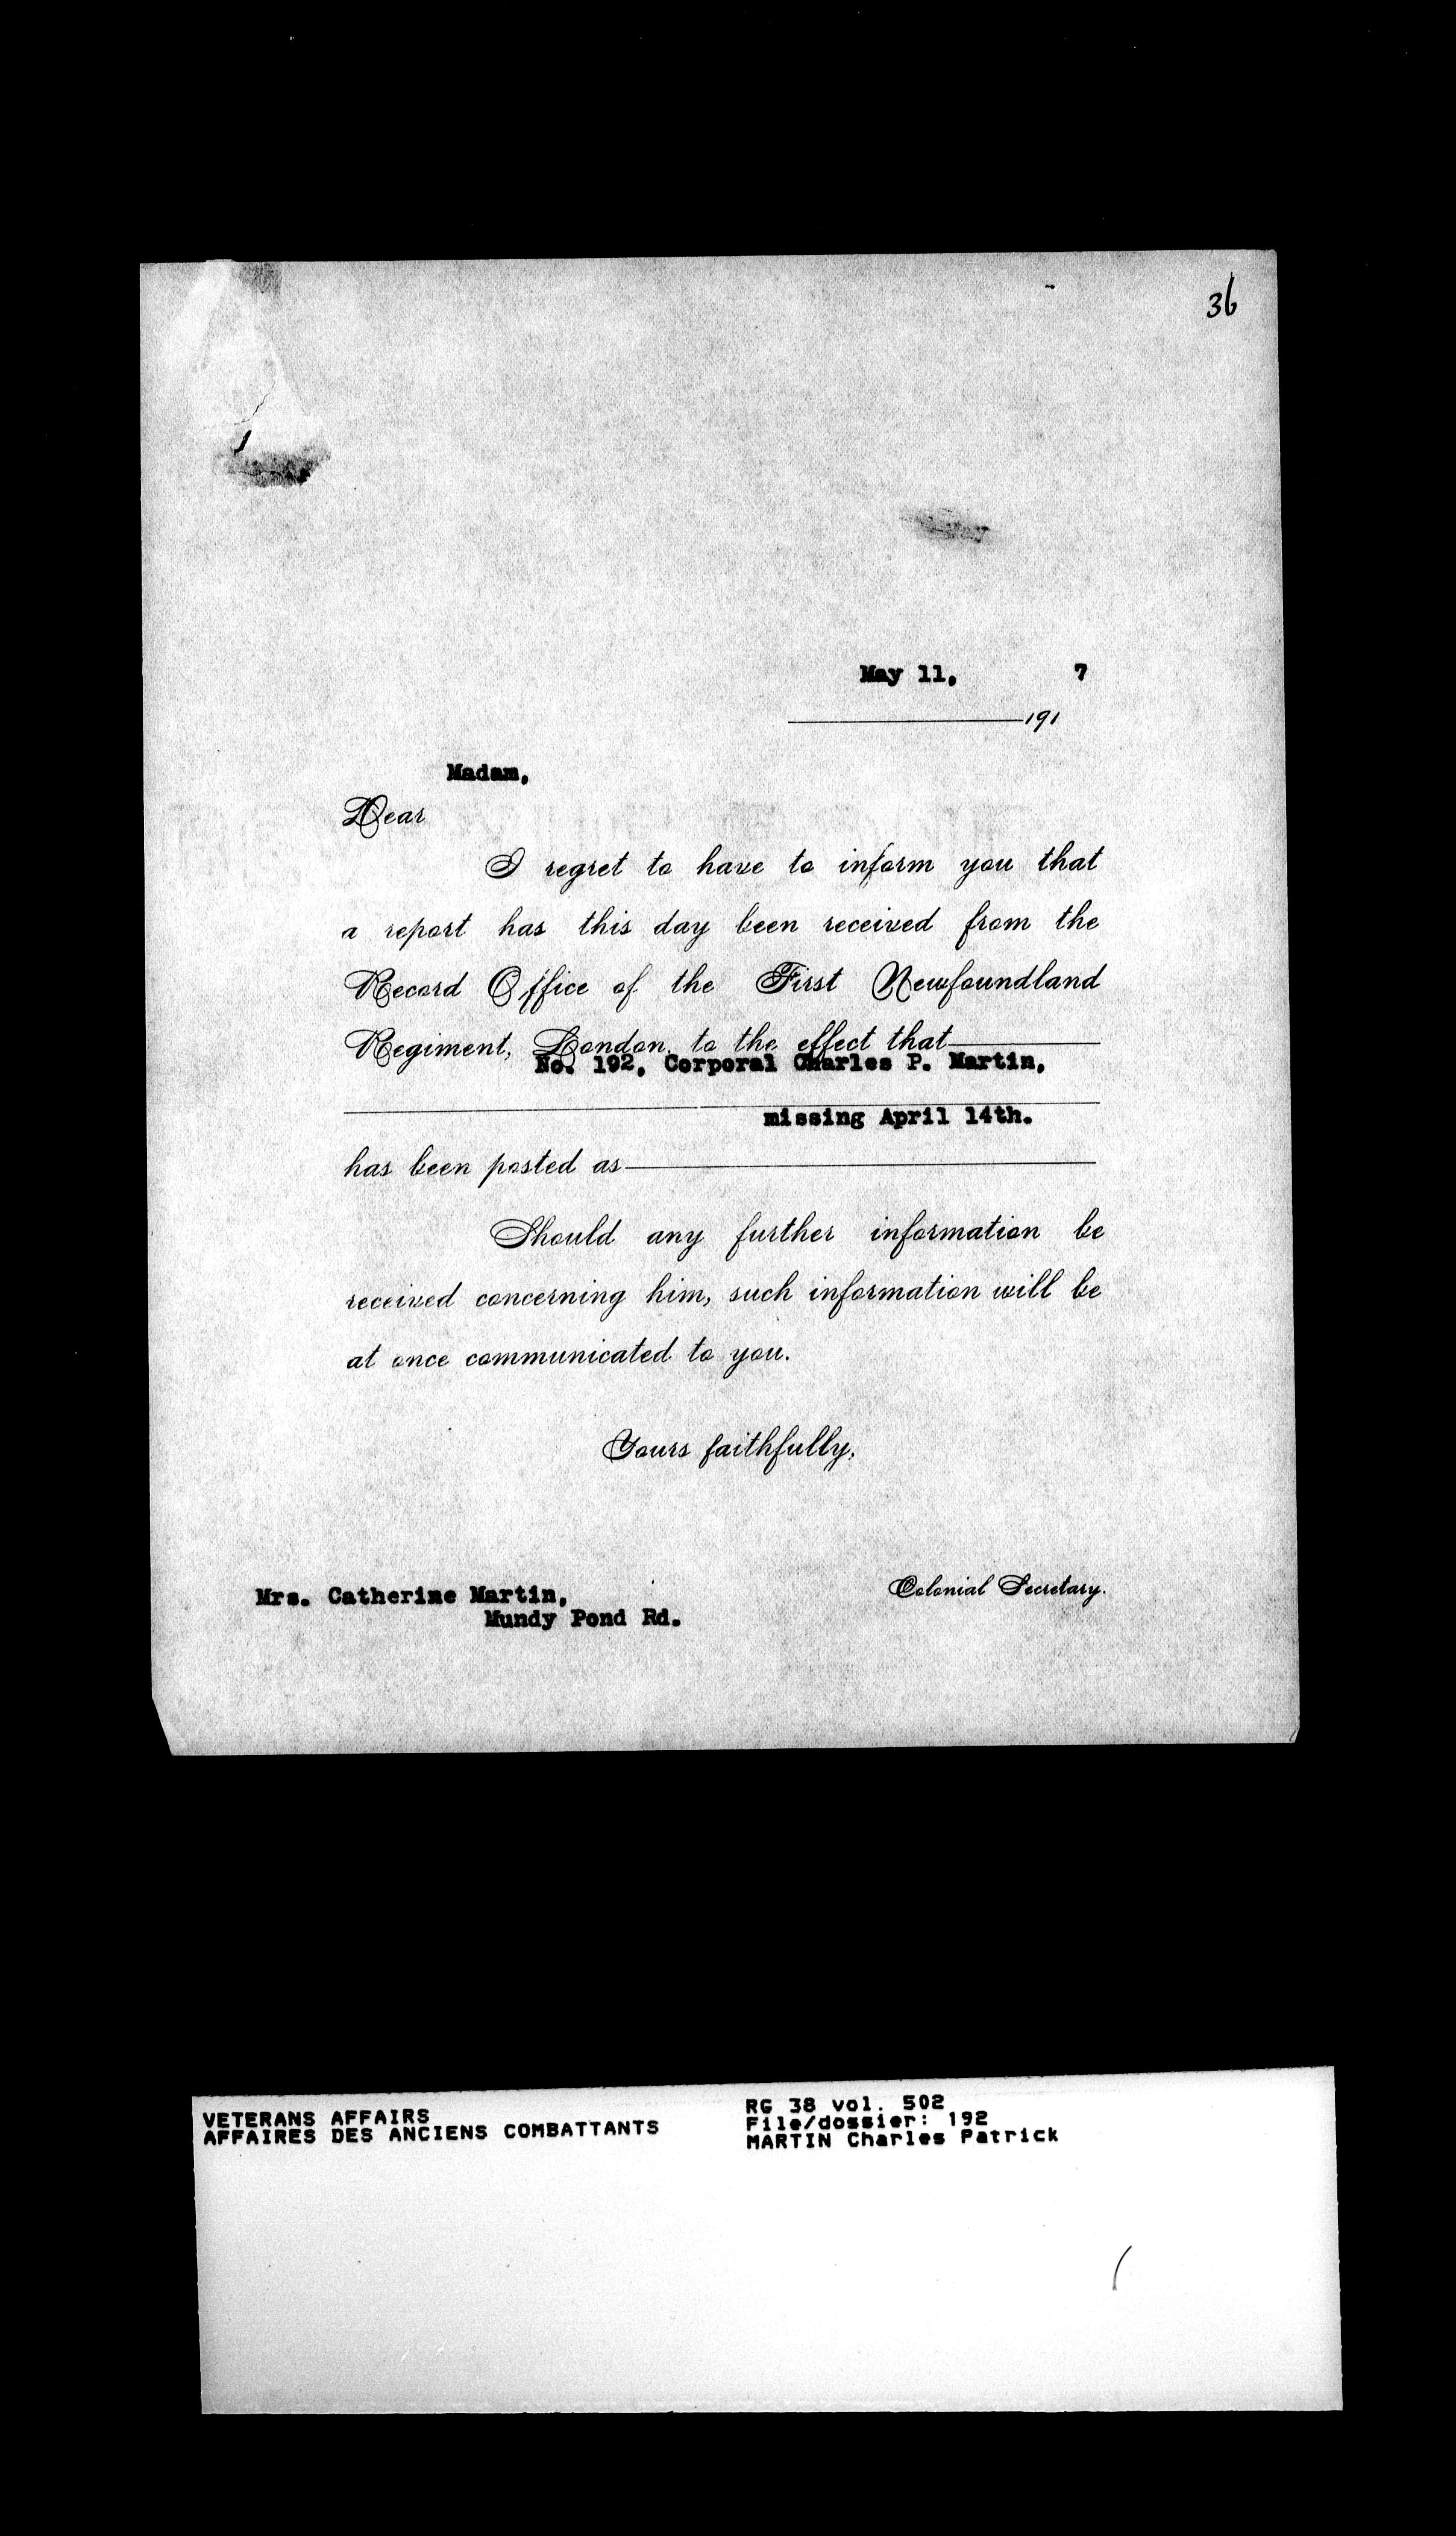 36
May 11, 7
191
Madam,
Dear
I regret to have to inform you that
a report has this day been received from the
Record Office of the First Newfoundland
Regiment, London, to the effect that
No. 192, Corporal Charles P. Martin,
missing April 14th.
has been posted as
Should any further information be
received concerning him, such information will be
at once communicated to you.
Yours faithfully,
Colonial Secretary.
Mrs. Catherine Martin,
Mundy Pond Rd.
VETERANS AFFAIRS
AFFAIRES DES ANCIENS COMBATTANTS
RG 38 vol. 502
File/dossier: 192
MARTIN Charles Patrick